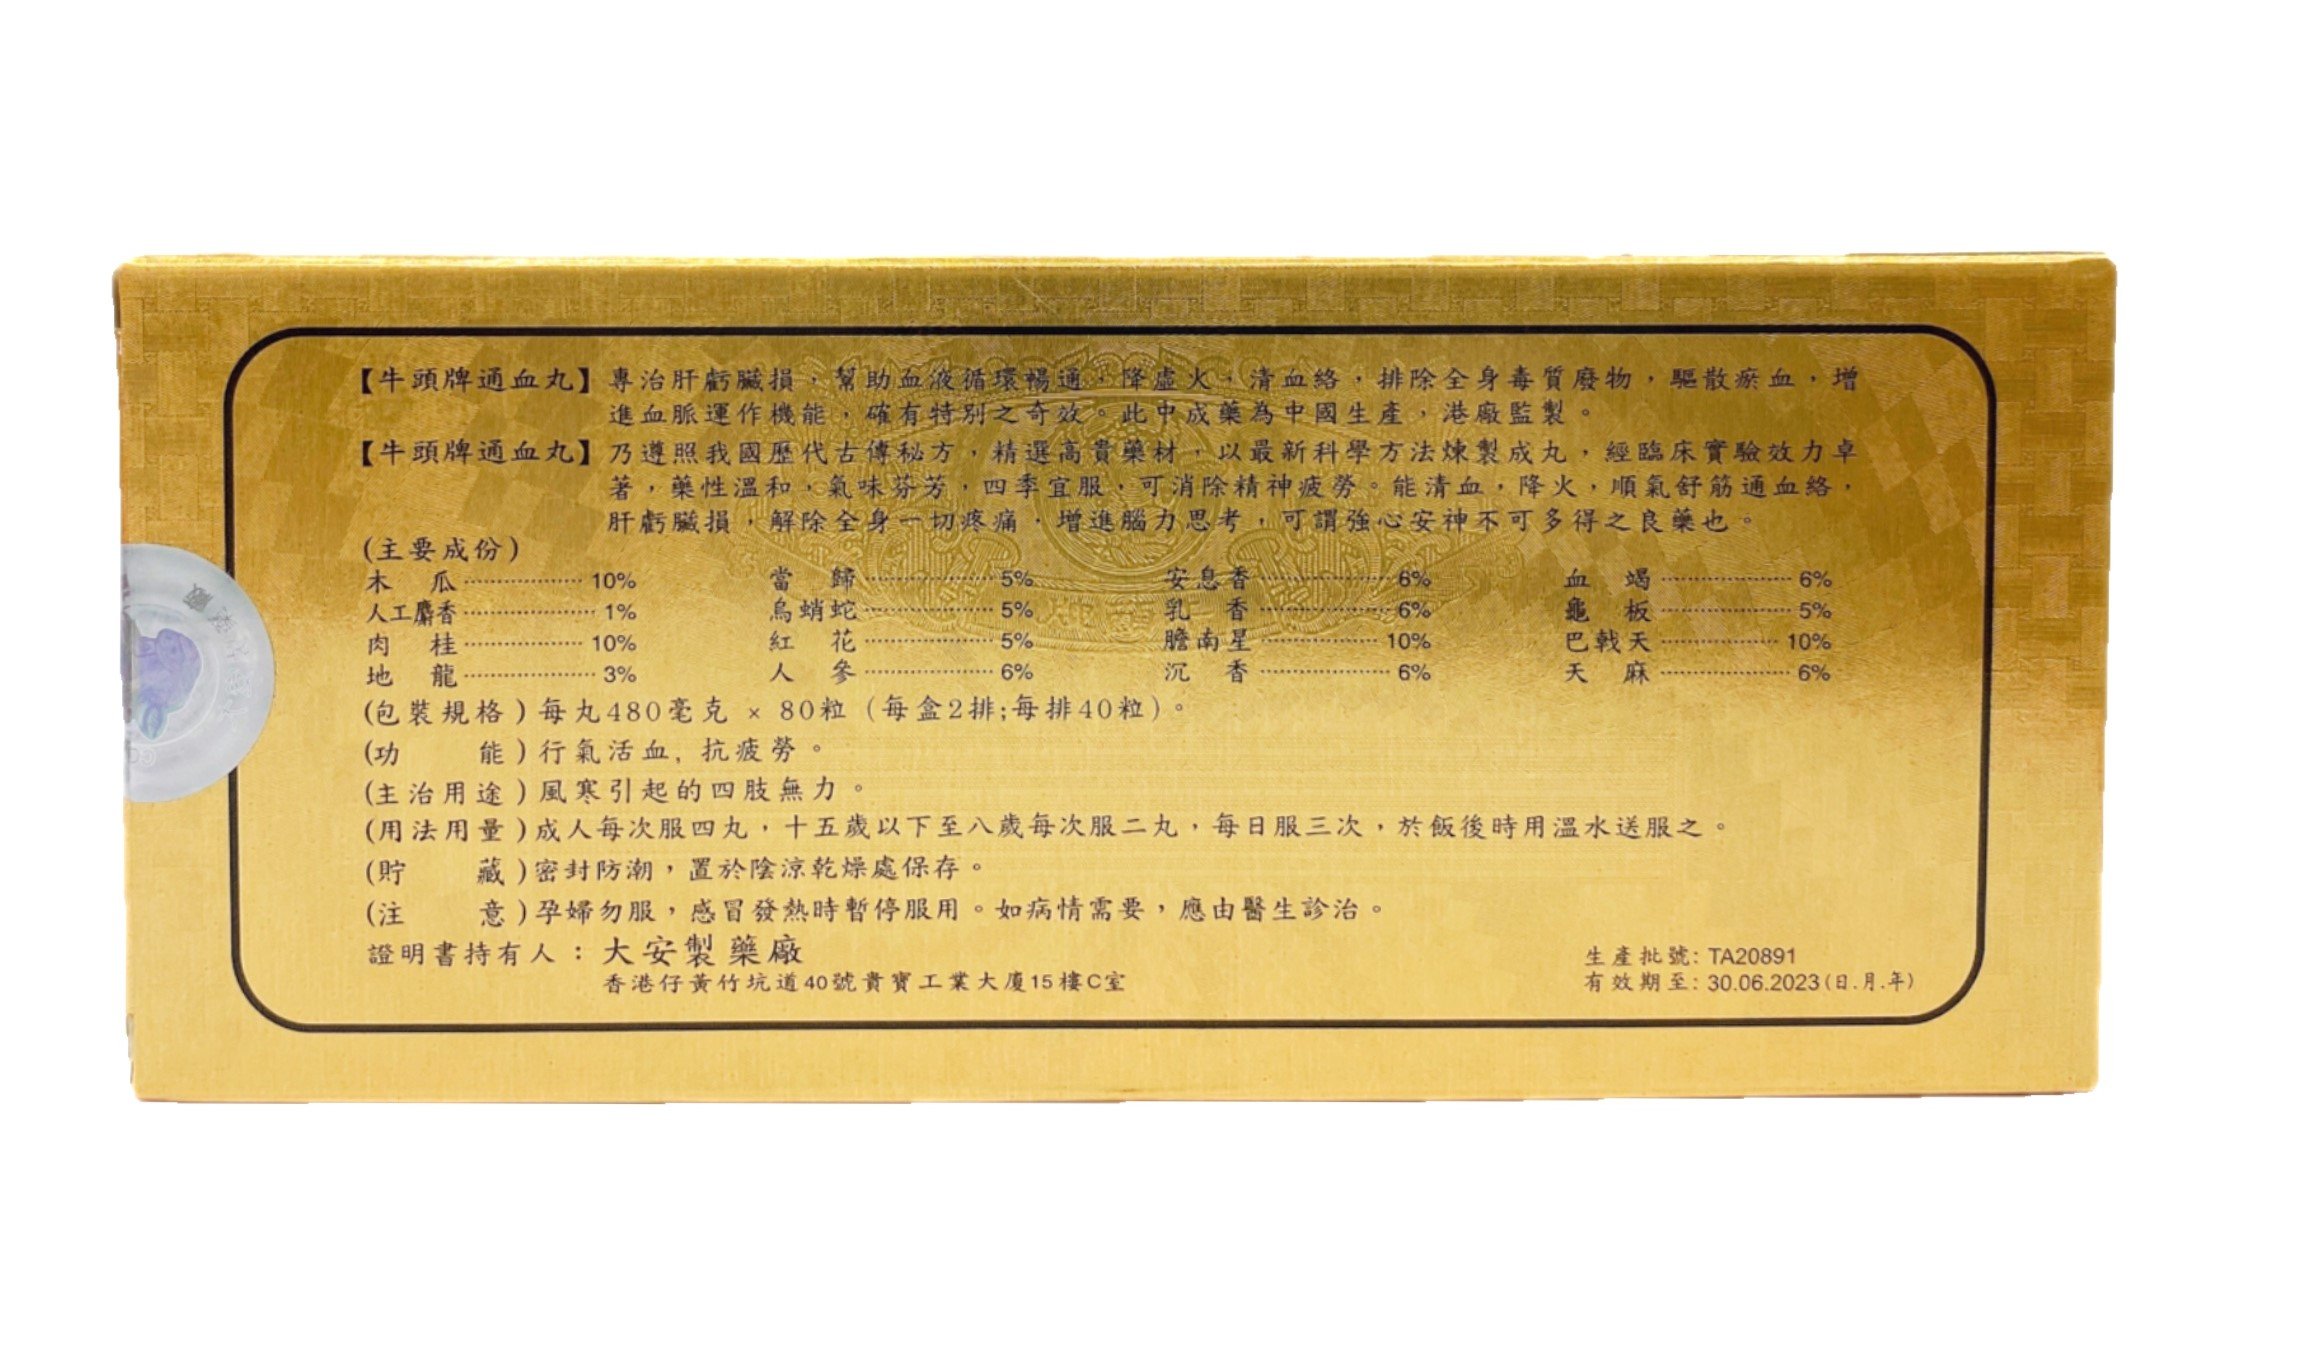 【牛頭牌通血丸】專治肝虧臟損，幫助血液循環暢通，降虛火，清血絡，排除全身毒質廢物，驅散瘀血，增
進血脈運作機能，確有特別之奇效。此中成藥為中國生產，港廠監製。
【牛頭牌通血丸】乃遵照我國歷代古傳秘方，精選高貴藥材，以最新科學方法煉製成丸，經臨床實驗效力卓
著，藥性溫和，氣味芬芳，四季宜服，可消除精神疲勞。能清血，降火，順氣舒筋通血絡，
肝虧臟損，解除全身一切疼痛，增進腦力思考，可謂強心安神不可多得之良藥也。
(主要成份)
木瓜 10% 當歸 5% 安息香 6% 血竭 6%
人工麝香 1% 烏蛸蛇 5% 乳香 6% 龜板 5%
肉桂 10% 紅花 5% 膽南星 10% 巴戟天 10%
地龍 3% 人參 6% 沉香 6% 天麻 6%
(包裝規格)每丸480毫克 × 80粒（每盒2排;每排40粒）。
(功能)行氣活血, 抗疲勞。
(主治用途)風寒引起的四肢無力。
(用法用量)成人每次服四丸，十五歲以下至八歲每次服二丸，每日服三次，於飯後時用溫水送服之。
(貯藏)密封防潮，置於陰涼乾燥處保存。
(注意)孕婦勿服，感冒發熱時暫停服用。如病情需要，應由醫生診治。
證明書持有人：大安製藥廠
香港仔黃竹坑道40號貴寶工業大廈15樓C室
生產批號: TA20891
有效期至: 30.06.2023(日.月.年)